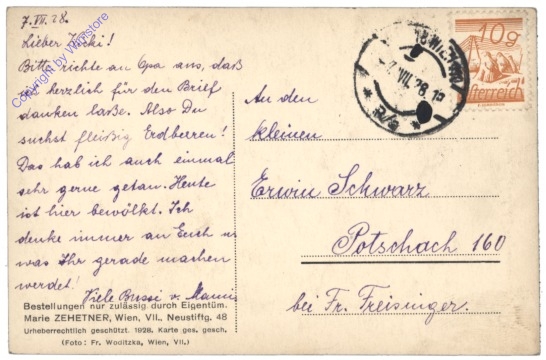 7.VII.28.
Lieber
Bitte richte an Opa aus, daß
ich herzlich für den Brief
danken laße. Also Du
suchst fleißig Erdbeeren!
Das hab ich auch einmal
sehr gerne getan. Heute
ist hier bewölkt. Ich
denke immer an Euch u.
was Ihr gerade machen
werdet!
Viele Bussi v. Mami
Bestellungen nur zulässig durch Eigentüm.
Marie ZEHETNER, Wien, VII., Neustiftg. 48
Urheberrechtlich geschützt. 1928. Karte ges. gesch.
(Foto: Fr. Woditzka, Wien, VII.)
10g
Österreich
VII.28
An den
kleinen
Erwin Schwarz
Potschach 160
bei Fr. Freisinger.
Copyright by Winstore